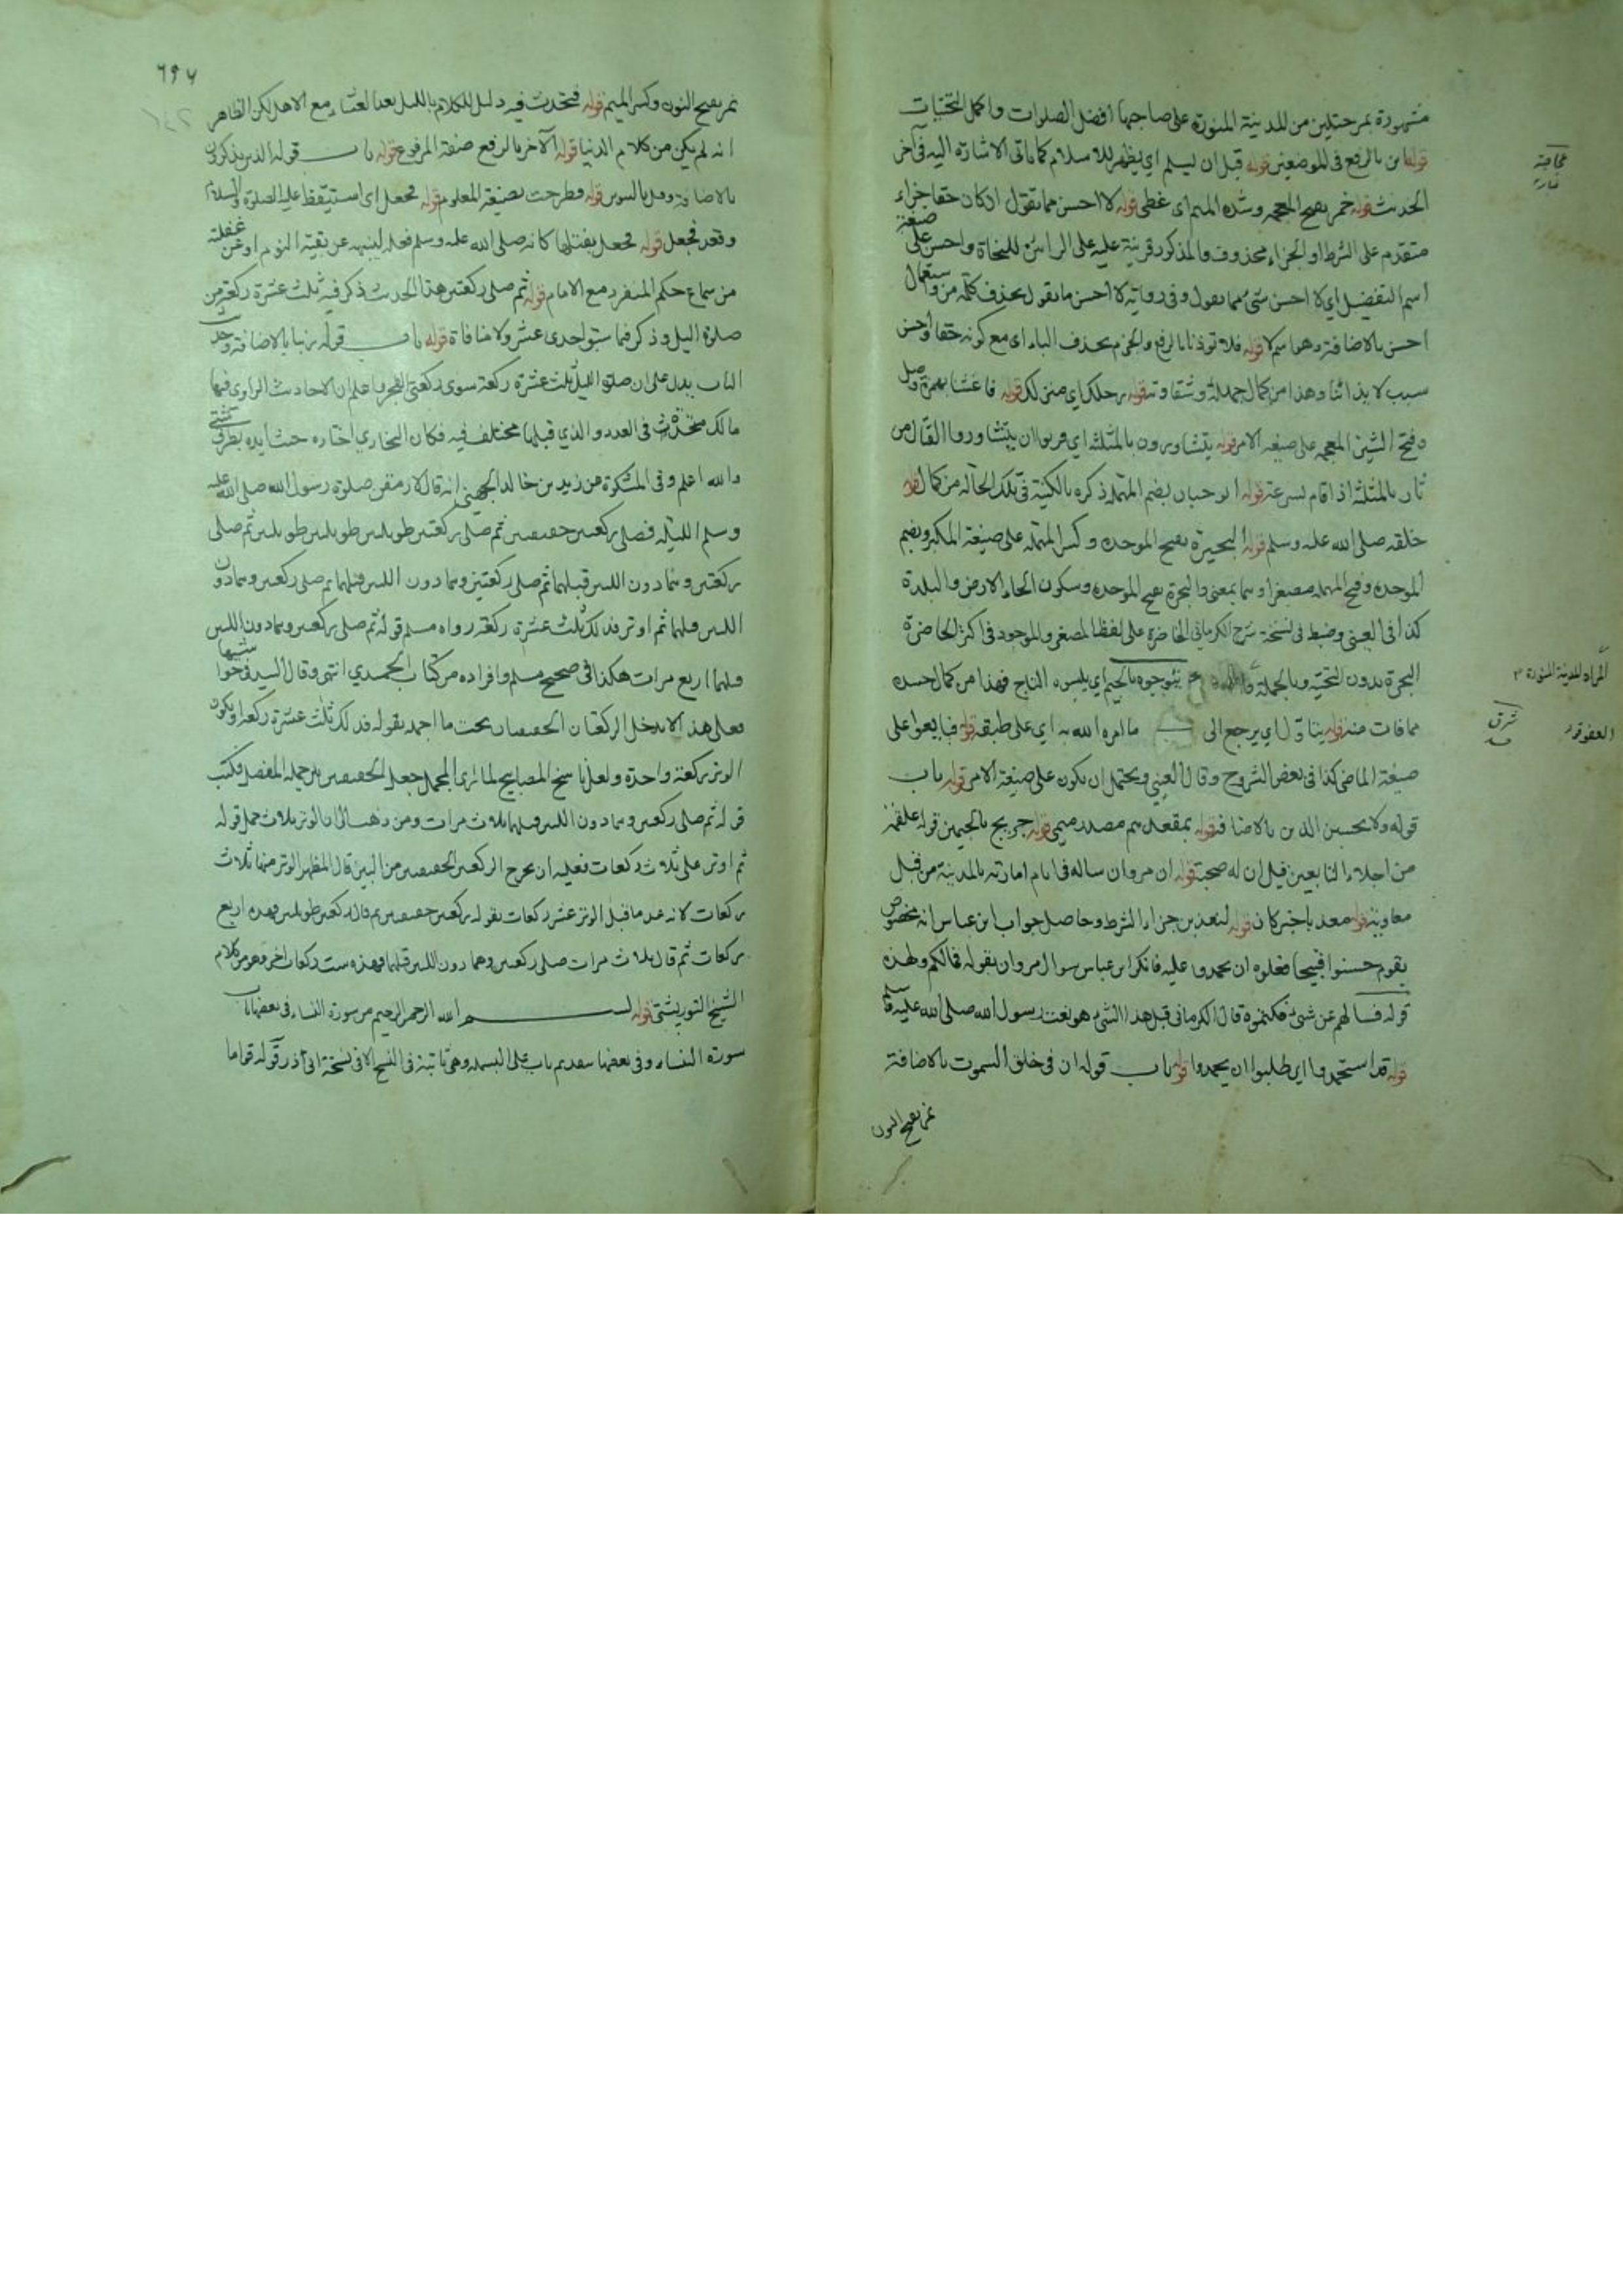 مشهورة بمرحلتين من المدينة المنورة على صاحبها افضل الصلوات واكمل التحيات
قوله ابن بالرفع في الموضعين قوله قبل ان يسلم اي يظهر للاسلام كما ياتي الاشارة اليه في آخر
الحديث قوله خمر بفتح المعجمة وشدة الميم اي غطى قوله لا احسن مما تقول ان كان حقا جزاء
متقدم على الشرط او الجزاء محذوف والمذكور قرينة عليه على الرائين للنحاة واحسن على صيغة
اسم التفضيل اي لا احسن شيء مما يقول وفي رواية لا احسن ما يقول بحذف كلمة من واستعمال
احسن بالاضافة وهما اسم لا قوله فلا توذنا بالرفع والجزم بحذف الياء اي مع كونه حقا واحسن
سبب لايذائنا وهذا من كمال جهله وشقاوته قوله رحلك اي منزلك قوله فاغشنا بهمزة وصل
وفتح الشين المعجمة على صيغة الامر قوله يتثاورون بالمثلثة اي قربوا ان يتثاوروا القتال من
ثار بالمثلثة اذا قام بسرعة قوله ابو حباب بضم المهملة ذكره بالكنية في تلك الحالة من كمال
خلقه صلى الله عليه وسلم قوله البحيرة بفتح الموحدة وكسر المهملة على صيغة المكبر وبضم
الموحدة وفتح المهملة مصغرا وهما بمعنى والبحرة بفتح الموحدة وسكون الحاء الارض والبلدة
كذا في العيني وضبط في نسخة شرح الكرماني الحاضرة على لفظ المصغر والموجود في اكثر الحاضرة
البحرة بدون التحتية وبالجملة يتوجوه بالجيم اي يلبسوه التاج فهذا من كمال حسده
مما فات منه قوله يتاول اي يرجع الى ما امره الله به اي على طبقه قوله فبايعوا على
صيغة الماضي كذا في بعض الشروح وقال العيني ويحتمل ان يكون على صيغة الامر قوله باب
قوله ولا يحسبن الذين بالاضافة قوله بمقعدهم مصدر ميمي قوله جريج بالجيمين قوله علقمة
من اجلاء التابعين قيل ان له صحبة قوله ان مروان ساله في ايام امارته بالمدينة من قبل
معاوية قوله معذبا خبر كان قوله لنعذبن جزاء الشرط وحاصل جواب ابن عباس انه مخصوص
بقوم حسنوا قبيحا فعلوه ان يحمدوا عليه فانكر ابن عباس سوال مروان بقوله فما لكم ولهذه
قوله فسالهم عن شيء فكتموه قال الكرماني قيل هذا الشيء هو نعت رسول الله صلى الله عليه وسلم
قوله قد استحمدوا اي طلبوا ان يحمدوا قوله باب قوله ان في خلق السموت بالاضافة
نمر بفتح النون
المراد المدينة المنورة
العفو قوله
٦٩٧
نمر بفتح النون وكسر الميم قوله فتحدث فيه دليل للكلام بالليل بعد العشاء مع الاهل لكن الظاهر
انه لم يكن من كلام الدنيا قوله الآخر بالرفع صفة المرفوع قوله باب قوله الذين يذكرون
بالاضافة قوله فطرحت بصيغة المعلوم قوله فجعل اي استيقظ عليه الصلوة والسلام
وقعد فجعل قوله فجعل يفتلها كانه صلى الله عليه وسلم فعله لينبهه عن بقية النوم او عن غفلته
من سماع حكم المنفرد مع الامام قوله ثم صلى ركعتين هذا الحديث ذكر فيه ثلث عشرة ركعة من
صلوة الليل وذكر فيما سبق احدى عشر ولا منافاة قوله باب قوله ربنا بالاضافة وحديث
الباب يدل على ان صلوة الليل ثلث عشرة ركعة سوى ركعتي الفجر واعلم ان الاحاديث الراوي فيها
مالك متحدة في العدد والذي قبلها مختلف فيه فكان البخاري اختاره حيث ايده بطرق شتى
والله اعلم وفي المشكوة عن زيد بن خالد الجهني انه قال لارمقن صلوة رسول الله صلى الله عليه
وسلم الليلة فصلى ركعتين خفيفتين ثم صلى ركعتين طويلتين طويلتين طويلتين ثم صلى
ركعتين وهما دون اللتين قبلهما ثم صلى ركعتين وهما دون اللتين قبلهما ثم صلى ركعتين وهما دون
اللتين قبلهما ثم اوتر فذلك ثلث عشرة ركعة رواه مسلم قوله ثم صلى ركعتين وهما دون اللتين
قبلهما اربع مرات هكذا في صحيح مسلم وافراده من كتاب الحميدي انتهى وقال السيد في حواشيها
فعلى هذا لا يدخل الركعتان الخفيفتان تحت ما اجمله بقوله فذلك ثلث عشرة ركعة او يكون
الوتر ركعة واحدة ولعل ناسخ المصابيح لما راى المجمل جعل الخفيفتين من جملة المفصل فكتب
قوله ثم صلى ركعتين وهما دون اللتين قبلهما ثلاث مرات ومن ذهب الى ان الوتر ثلاث حمل قوله
ثم اوتر على ثلاث ركعات فعليه ان يخرج الركعتين الخفيفتين من البين قال المظهر الوتر منها ثلاث
ركعات لانه عد ما قبل الوتر عشر ركعات بقوله ركعتين خفيفتين ثم قال ركعتين طويلتين فهذه اربع
ركعات ثم قال ثلاث مرات صلى ركعتين وهما دون اللتين قبلهما فهذه ست ركعات اخر فهو من كلام
الشيخ التوربشتي قوله بسم الله الرحمن الرحيم من سورة النساء في بعضها باب
سورة النساء وفي بعضها بتقديم باب على البسملة وهي ثابتة في النسخ الا في نسخة ابي ذر قوله قواما